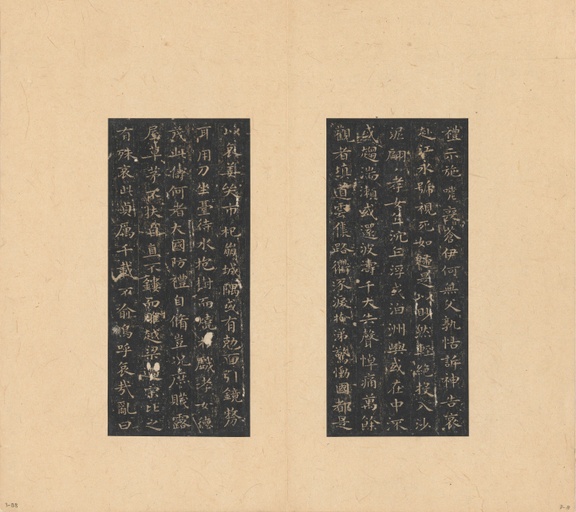 禮示施嗟喪蒼伊何無父孰怙訴神告哀
赴江永號視死如歸是以眇然輕絕投入沙
泥翩孝女乍沉乍浮或泊洲嶼或在中流
或趨湍瀨或還波濤千夫失聲悼痛萬餘
觀者填道雲集路衢流淚掩涕驚慟國都是
以哀姜哭市杞崩城隅或有剋面引鏡剺
耳用刀坐臺待水抱樹而燒於戲孝女德
茂此儔何者大國防禮自脩豈況庶賤露
屋草茅不扶自直不鏤而雕越梁過宋比之
有殊哀此貞厲千載不渝嗚呼哀哉亂曰